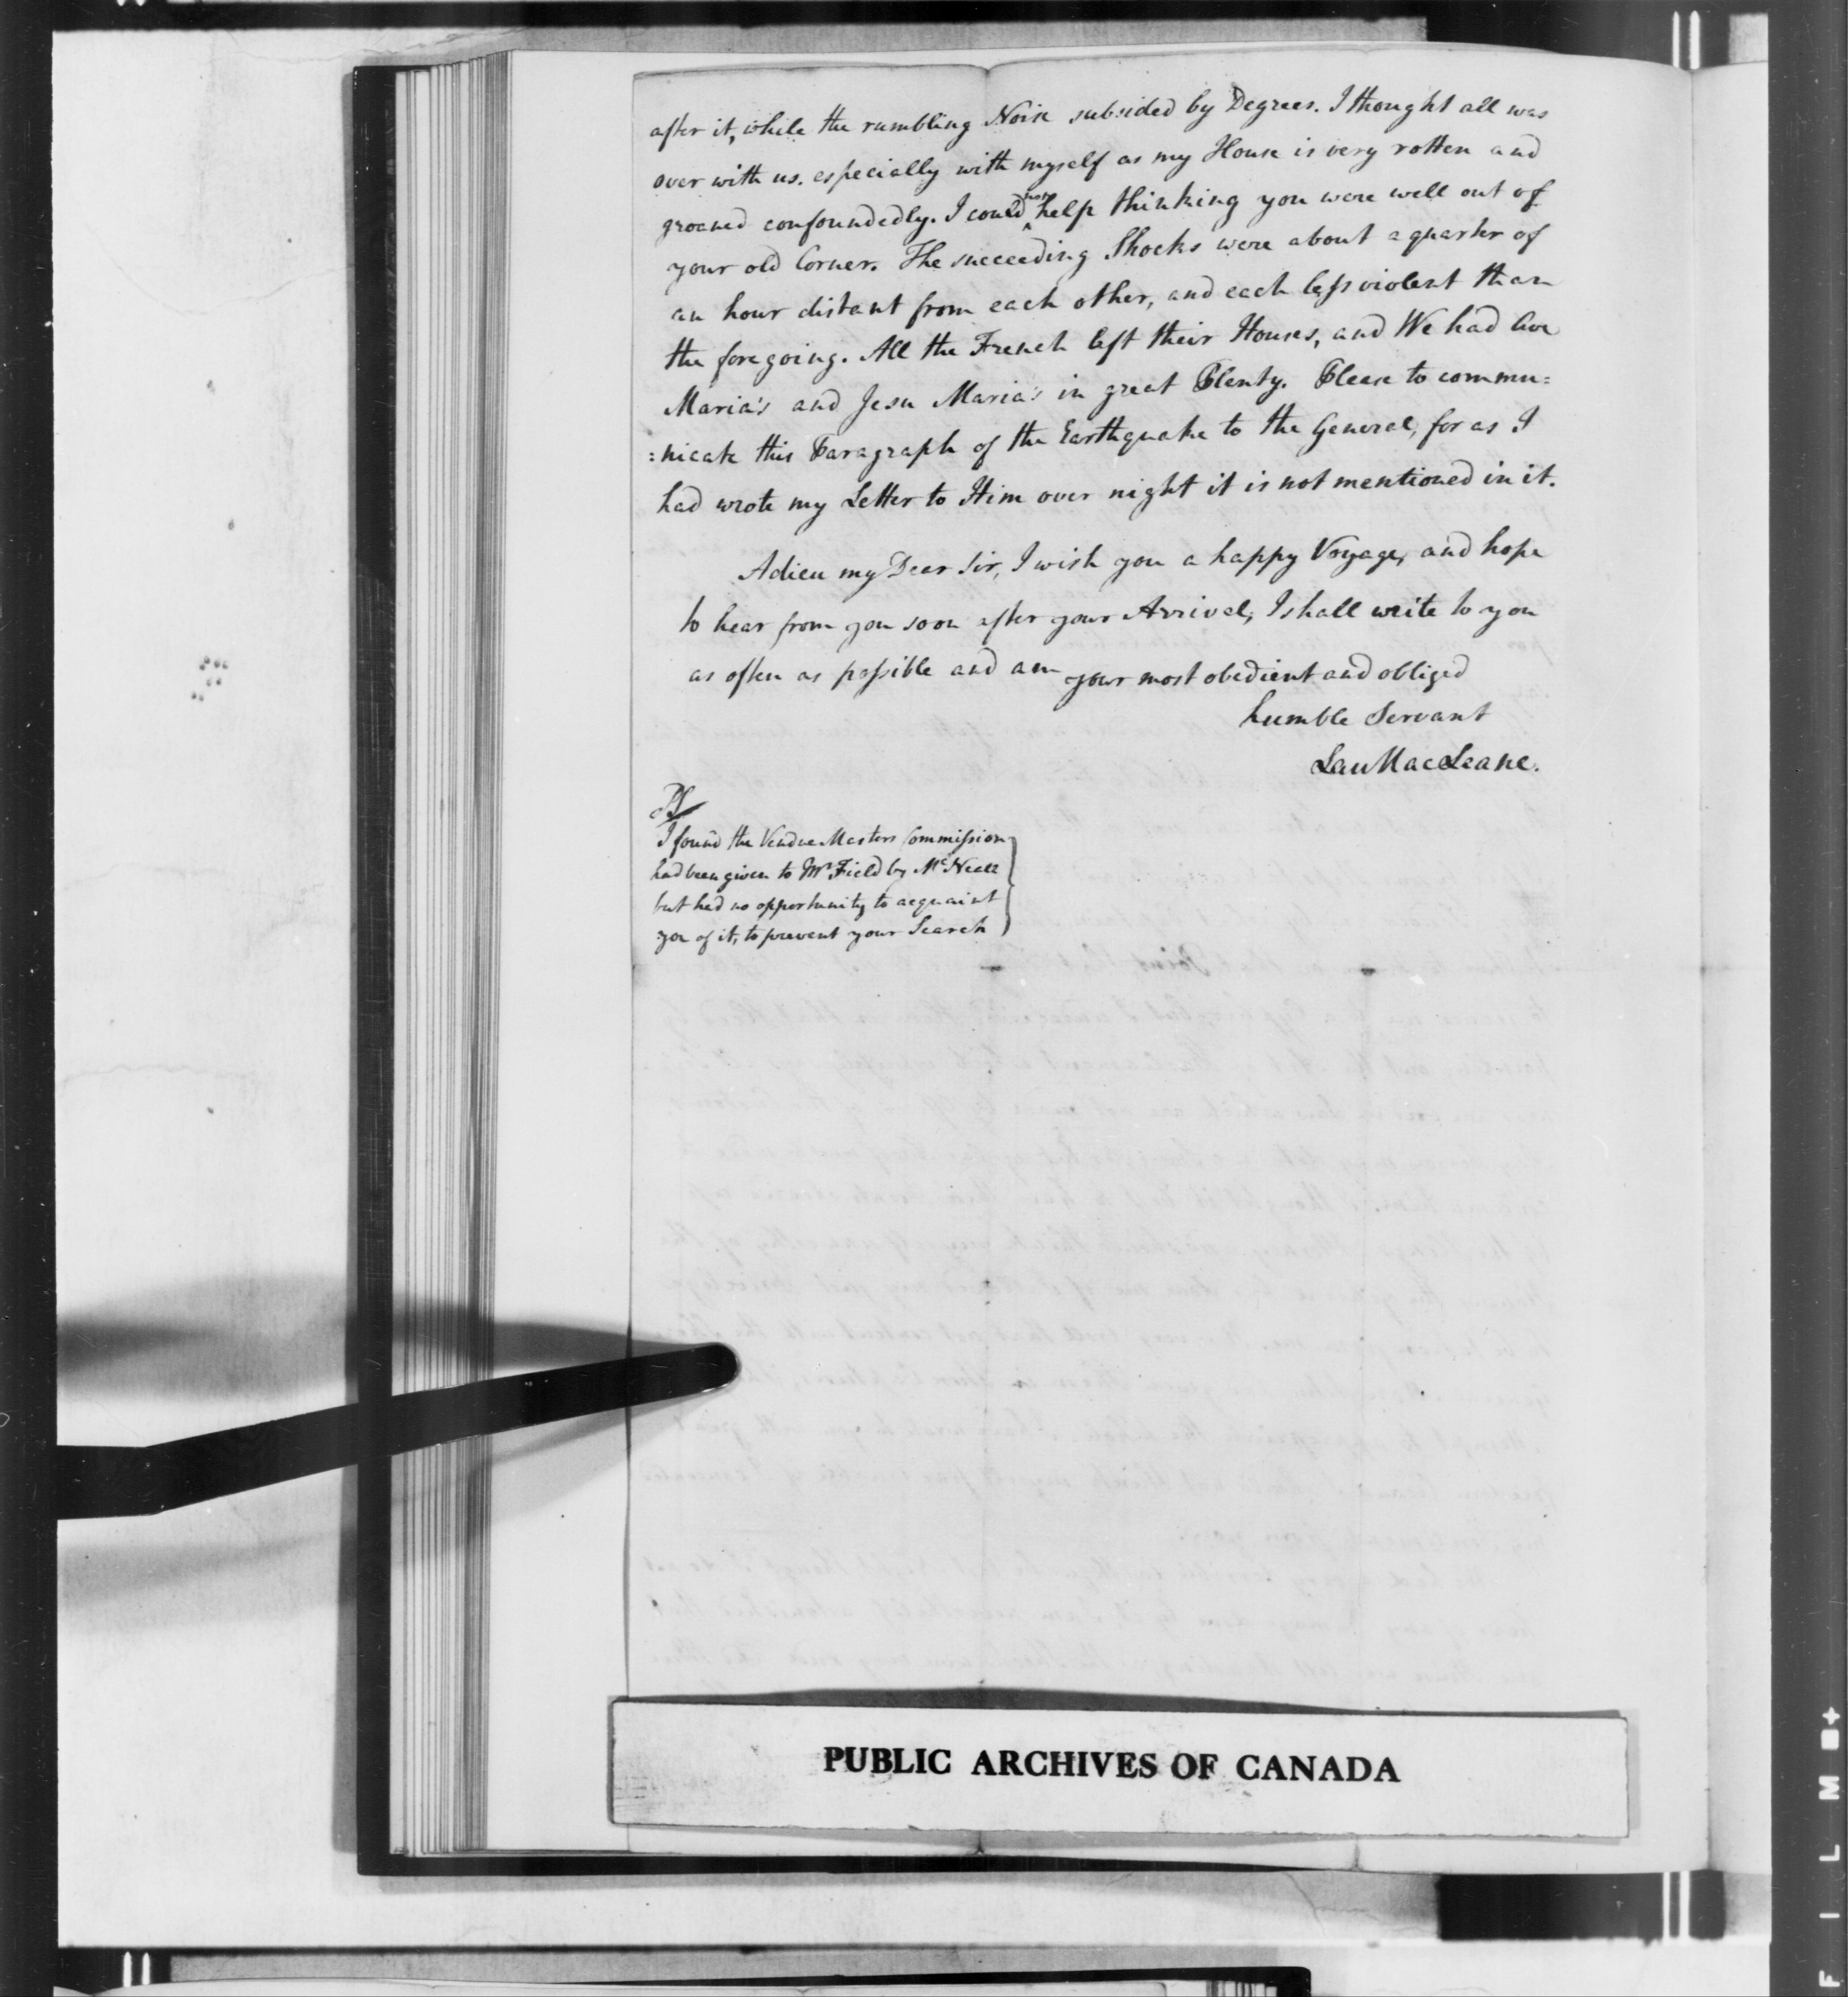 after it, while the rumbling Noise subsided by Degrees. I thought all was
over with us. especially with myself as my House is very rotten and
groaned confoundedly. I could not help thinking you were well out of
your old Corner. The succeeding Shocks were about a quarter of
an hour distant from each other, and each less violent than
the foregoing. All the French left their Houses, and We had Ave
Maria's and Jesu Maria's in great Plenty. Please to commu=
=nicate this Paragraph of the Earthquake to the General, for as I
had wrote my Letter to Him over night it is not mentioned in it.
Adieu my Dear Sir, I wish you a happy Voyage, and hope
to hear from you soon after your Arrival, I shall write to you
as often as possible and am your most obedient and obliged
humble Servant
Lau MacLeane.
PS
I found the Vendue Masters Commission
had been given to Mr Field by McNeill
but had no opportunity to acquaint
you of it, to prevent your Search
PUBLIC ARCHIVES OF CANADA
FILM